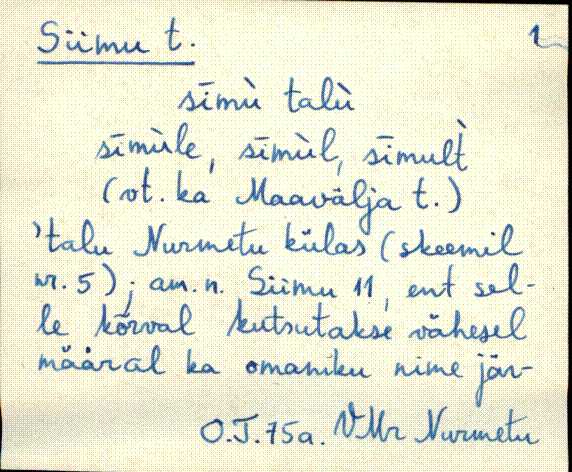 Siimu t. 1
sīmù talù
sīmùle, sīmùl, sīmult̀
(vt. ka Maavälja t.)
'talu Nurmetu külas (skeemil
nr. 5); am. n. Siimu 11, ent sel-
le kõrval kutsutakse vähesel
määral ka omaniku nime jär-
O.J. 75a. VMr Nurmetu